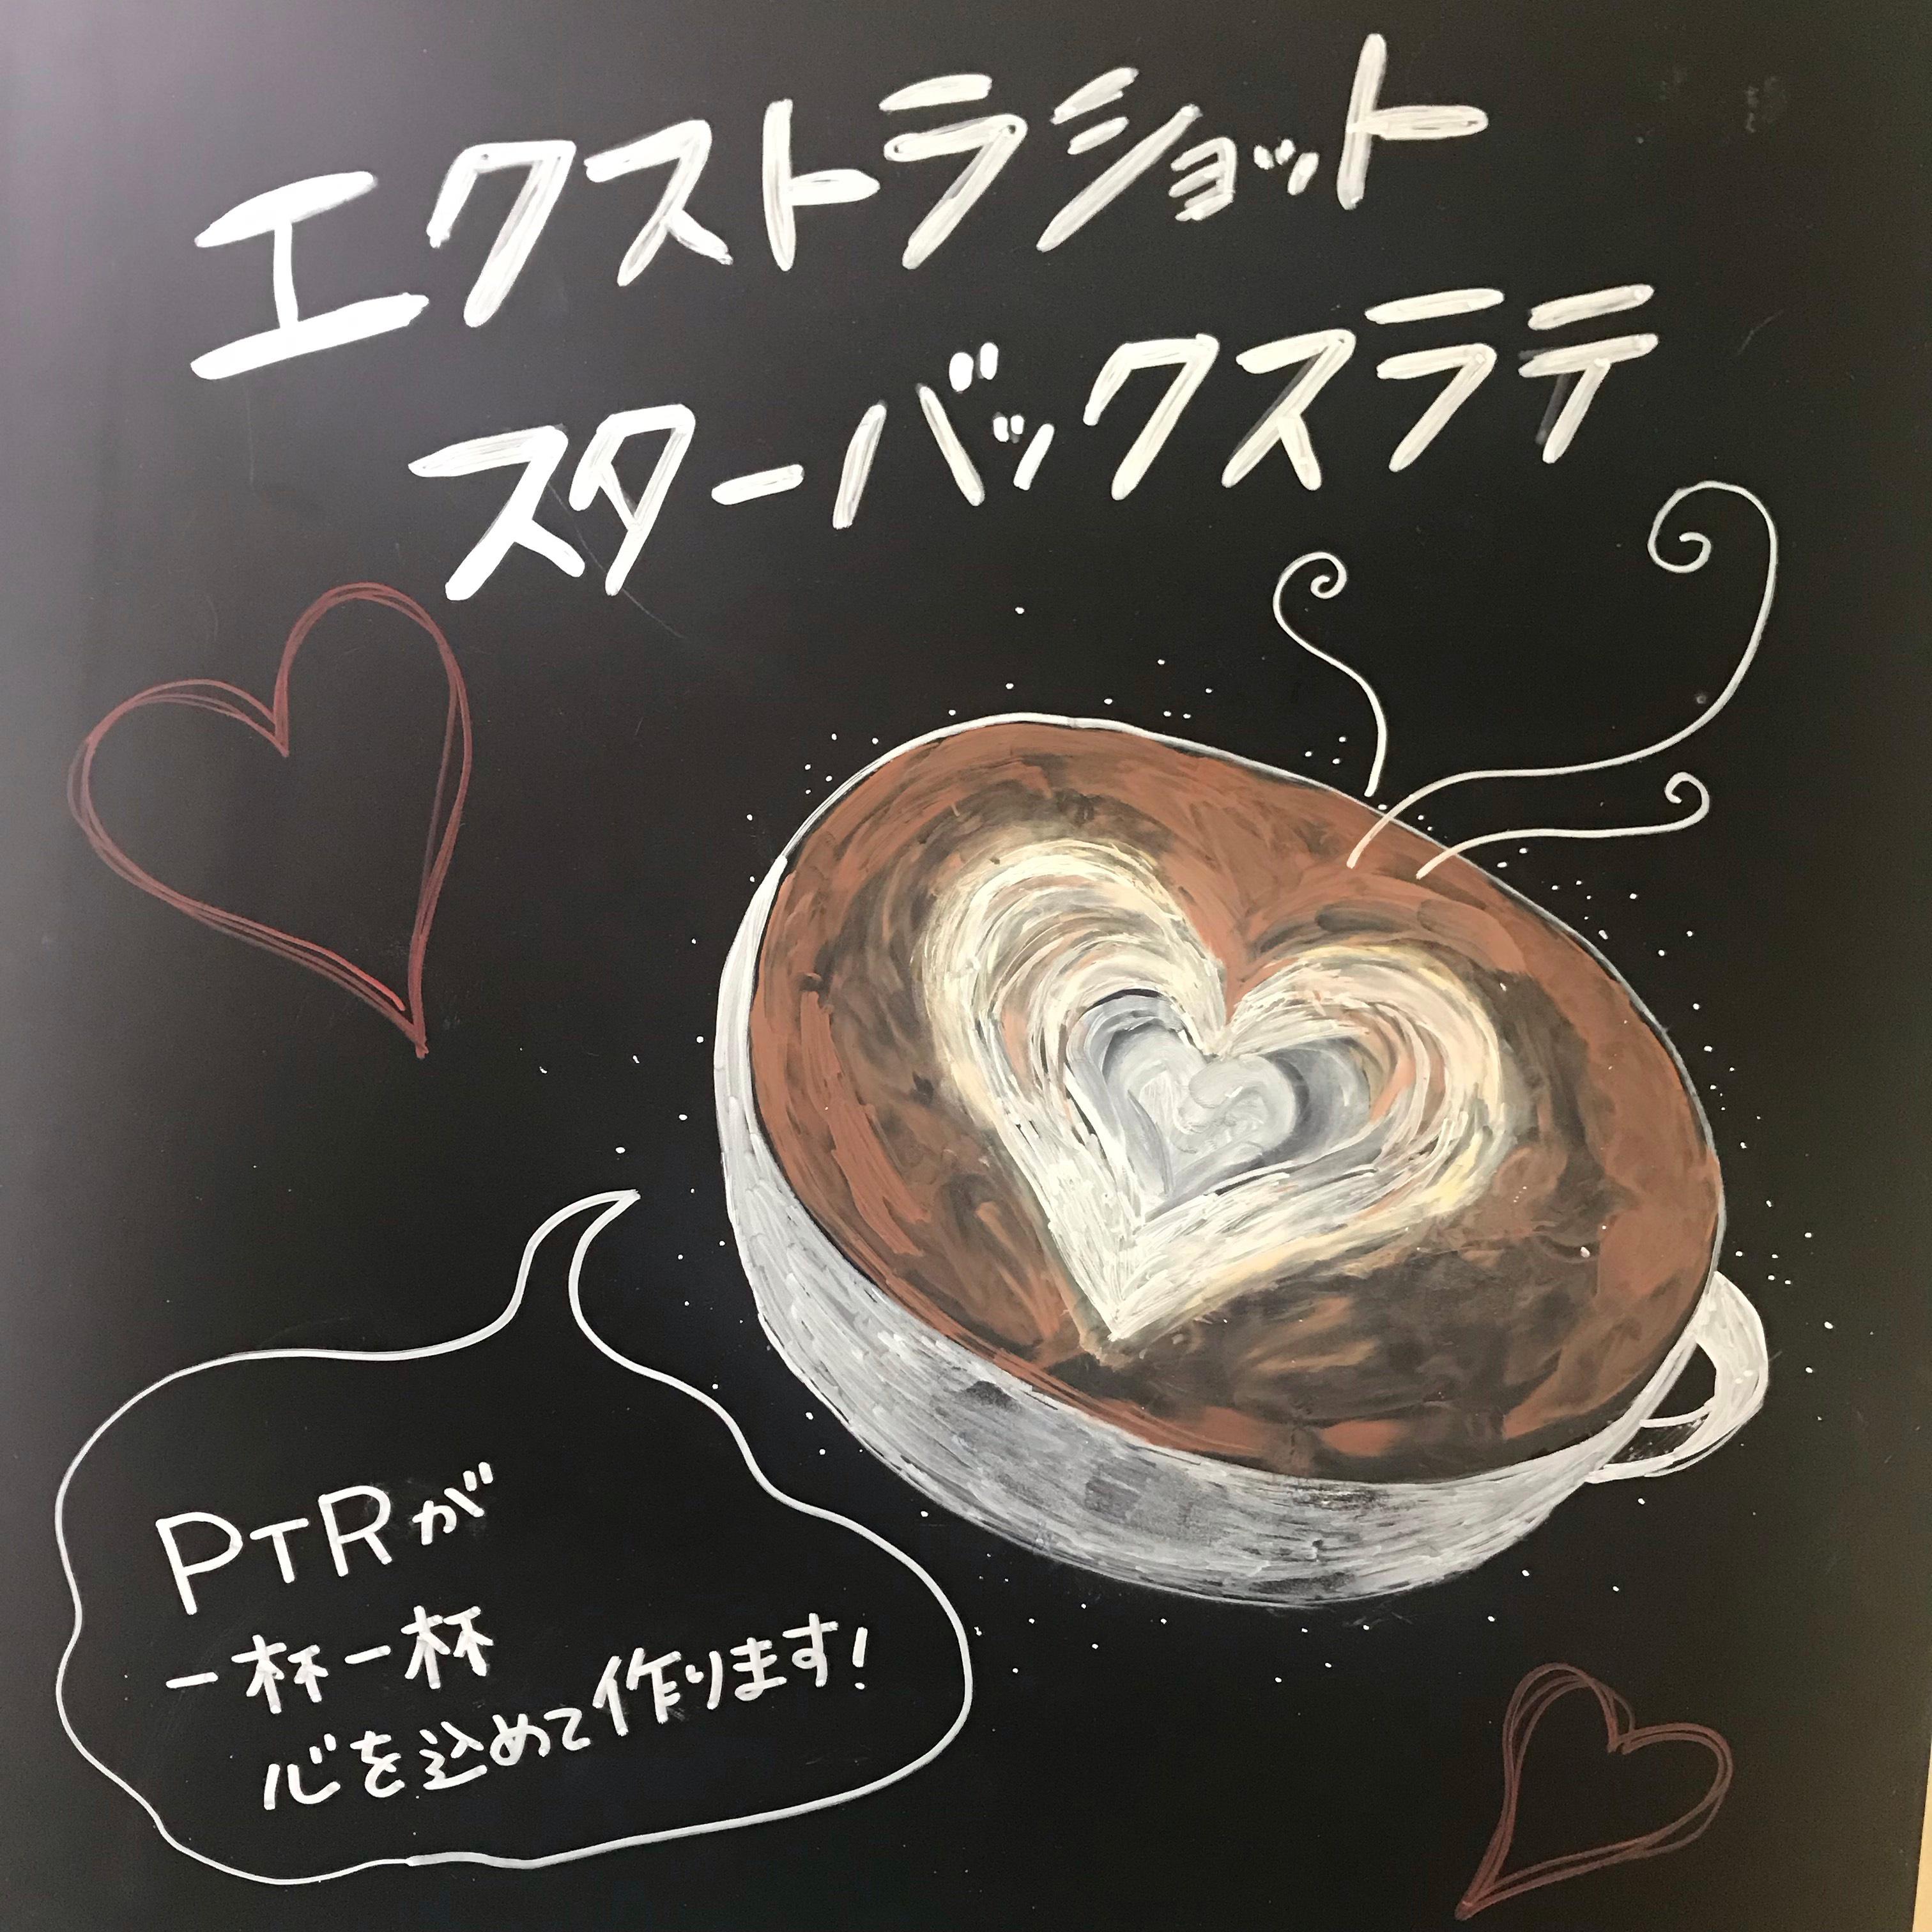 エクストラショット
スターバックスラテ
PTRが
一杯一杯
心を込めて作ります!